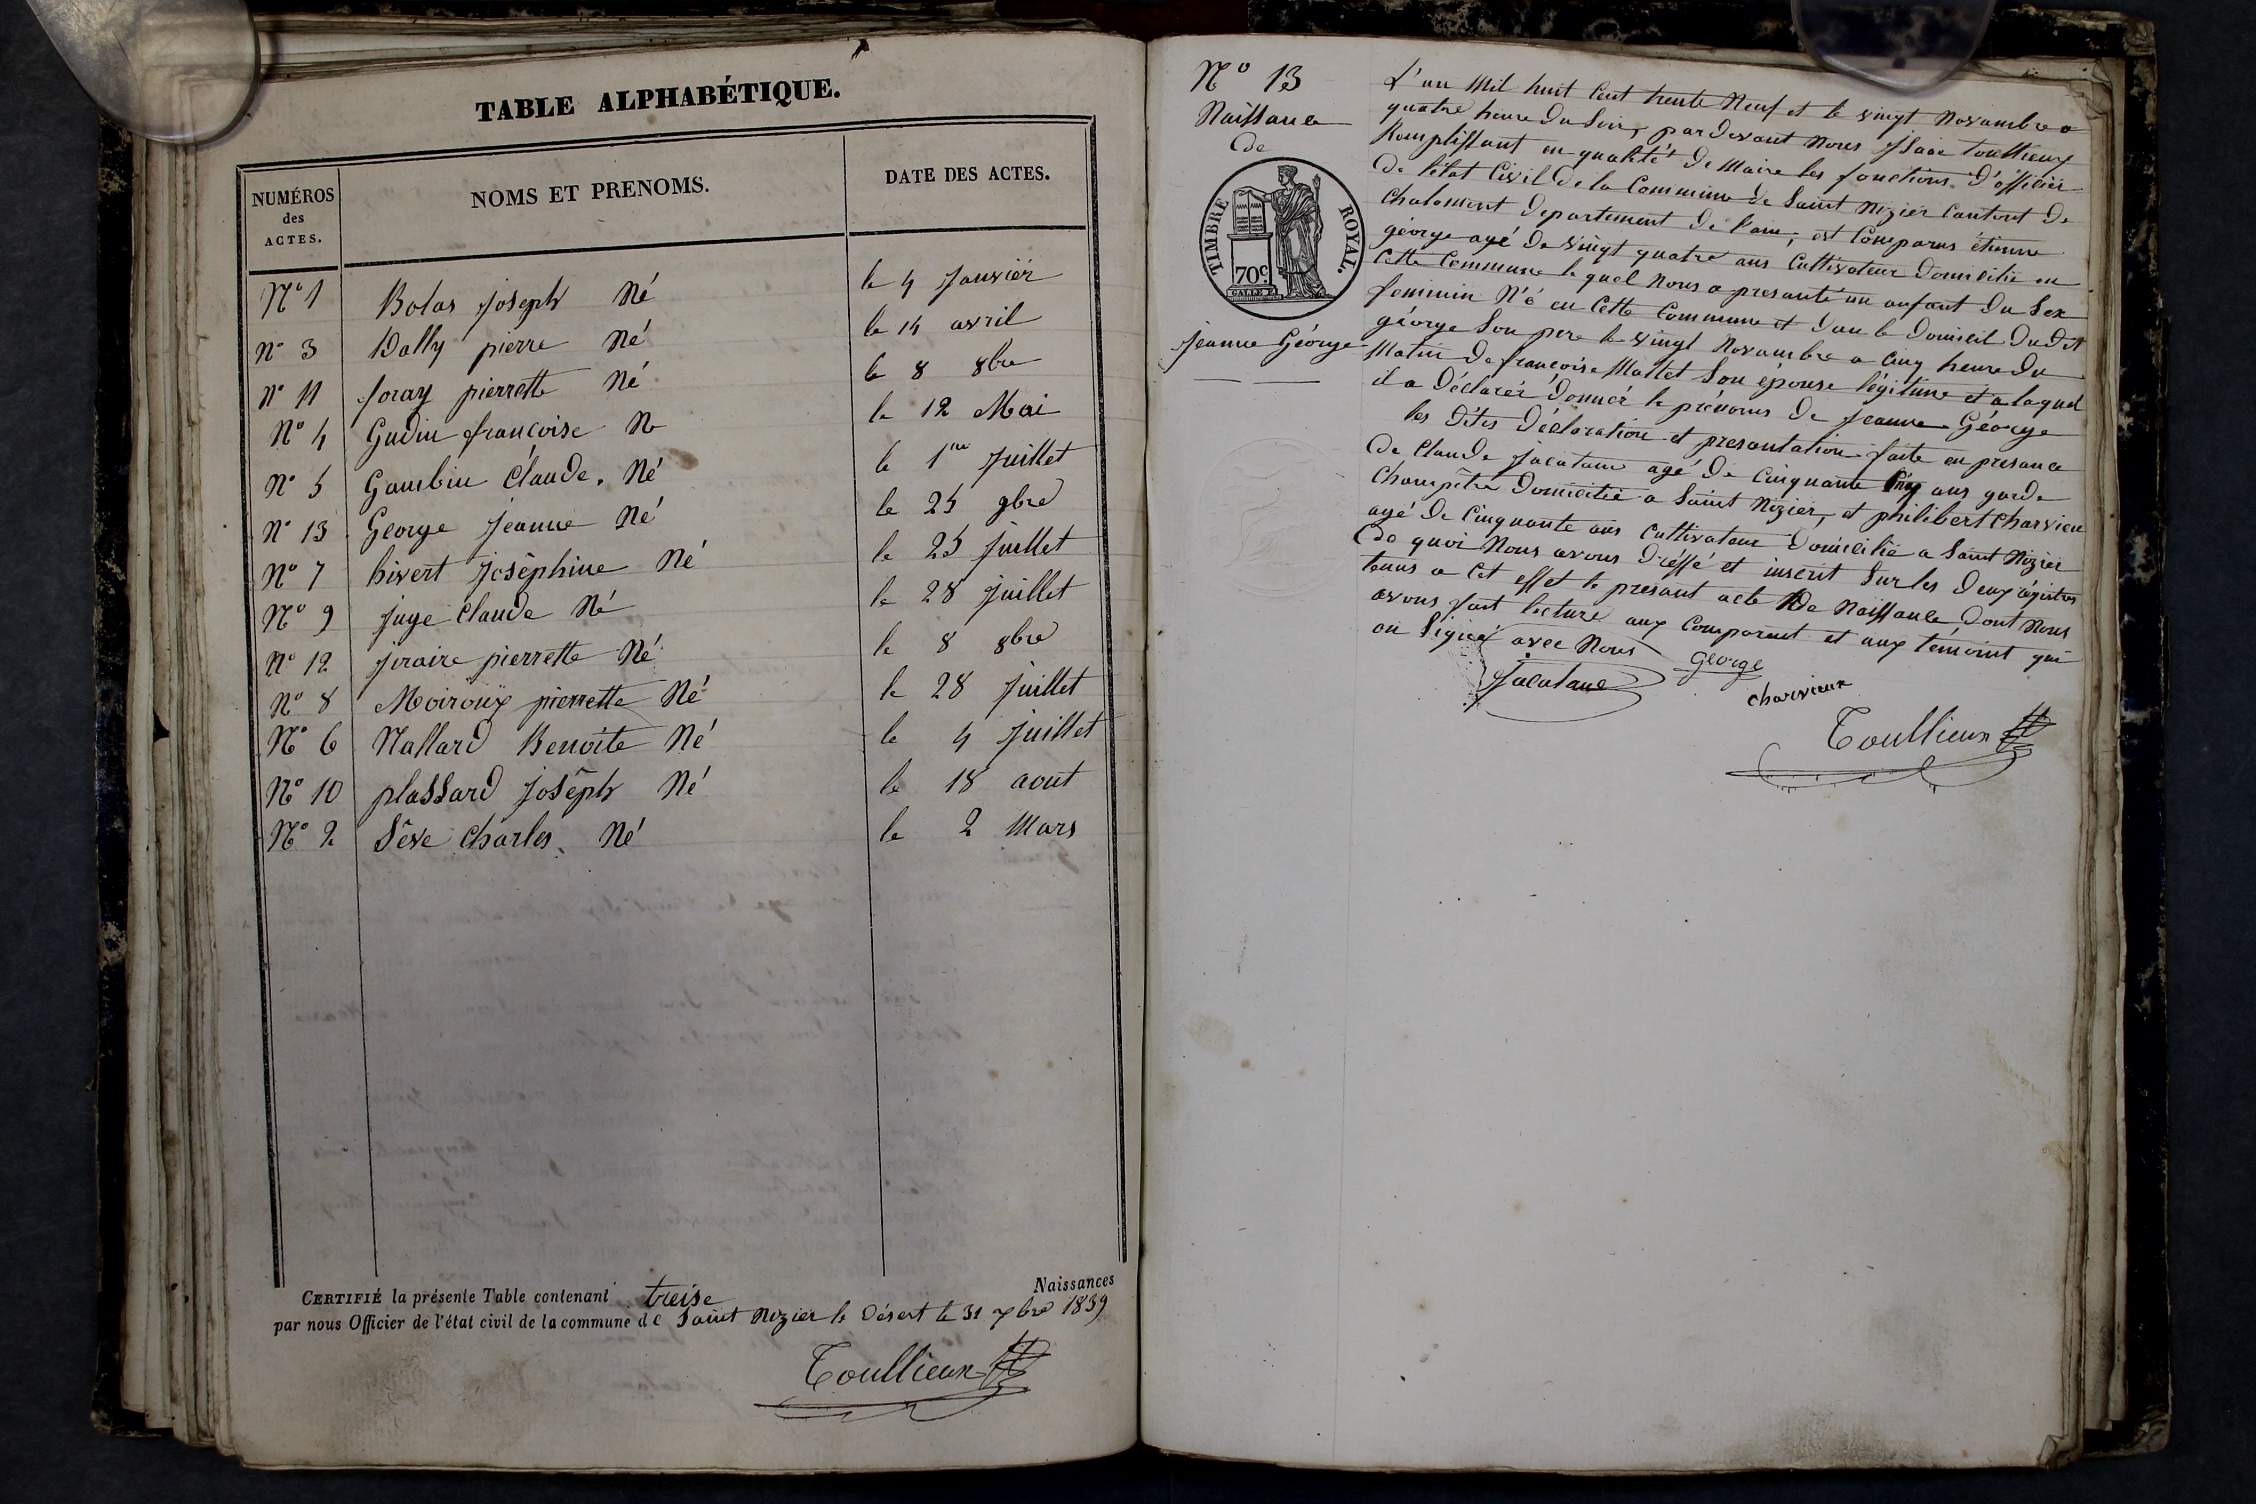 TABLE ALPHABÉTIQUE.
NUMÉROS des ACTES. NOMS ET PRENOMS. DATE DES ACTES.
N° 1 Bolas joseph Né le 4 Janvier
N° 3 Dally pierre Né le 14 avril
N° 11 foray pierrette Né le 8 8bre
N° 4 Gudin françoise Né le 12 Mai
N° 5 Gambin Claude. Né le 1er Juillet
N° 13 George Jeanne Né le 25 9bre
N° 7 hivert Joséphine Né le 25 Juillet
N° 9 juge Claude Né le 28 juillet
N° 12 jiraire pierrette Né le 8 8bre
N° 8 Moiroux pierrette Né le 28 Juillet
N° 6 Nallard Benoite Né le 4 Juillet
N° 10 plassard Joséph Né le 18 aout
N° 2 Sêve Charles Né le 2 Mars
CERTIFIÉ la présente Table contenant treise Naissances
par nous Officier de l'état civil de la commune de Saint Nizier le Désert le 31 xbre 1839
Toullieux
N° 13
Naissance
de
TIMBRE ROYAL.
70c.
jeanne George
L'an Mil huit Cent trente Neuf et le vingt Novambre a
quatre heure du Soir, par devant Nous jsaac Toullieux
Remplissant en qualité de Maire les fonctions d'officier
de l'état Civil de la Commune de Saint Nizier Cantont de
Chalamont departement de l'ain, est Comparus étienne
géorge agé de vingt quatre ans Cultivateur domicilié en
Cette Commune le quel Nous a presanté un anfant du Sex
feminin Né en Cette Commune et dan le domicil du dit
géorge Son pere le vingt Novambre a Cinq heure du
Matin de françoise Mallet Son épouse légitime et a laquel
il a Déclarér donnér le prénoms de Jeanne Géorge
les dites déclaration et presantation faite en presance
de Claude jacatane agé de Cinquante Cinq ans garde
Champêtre domicilié a Saint Nizier, et philibert Charvieu
agé de Cinquante ans Cultivateur domicilié a Saint Nizier
de quoi Nous avons dréssé et inscrit Sur les deux régistres
tenus a Cet effet le presant acte de Naissance dont Nous
avons fait lecture aux Comparent et aux témoint qui
on Signé avec Nous
George
Jacatane
charvieux
Toullieux